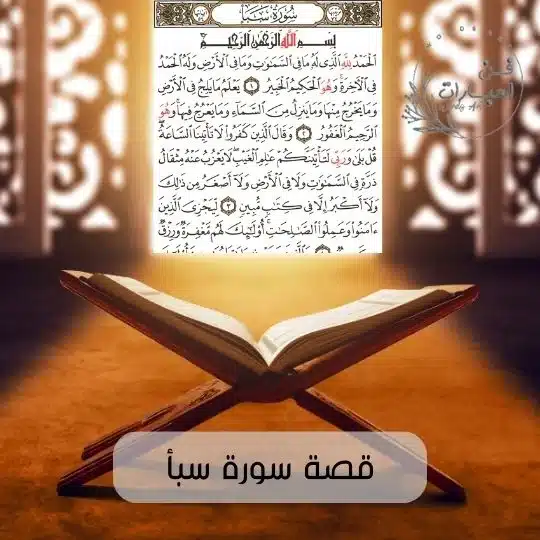 سُورَةُ سَبَإٍ
بِسْمِ اللَّهِ الرَّحْمَٰنِ الرَّحِيمِ
الْحَمْدُ لِلَّهِ الَّذِي لَهُ مَا فِي السَّمَاوَاتِ وَمَا فِي الْأَرْضِ وَلَهُ الْحَمْدُ
فِي الْآخِرَةِ وَهُوَ الْحَكِيمُ الْخَبِيرُ ١ يَعْلَمُ مَا يَلِجُ فِي الْأَرْضِ
وَمَا يَخْرُجُ مِنْهَا وَمَا يَنْزِلُ مِنَ السَّمَاءِ وَمَا يَعْرُجُ فِيهَا وَهُوَ
الرَّحِيمُ الْغَفُورُ ٢ وَقَالَ الَّذِينَ كَفَرُوا لَا تَأْتِينَا السَّاعَةُ
قُلْ بَلَىٰ وَرَبِّي لَتَأْتِيَنَّكُمْ عَالِمِ الْغَيْبِ لَا يَعْزُبُ عَنْهُ مِثْقَالُ
ذَرَّةٍ فِي السَّمَاوَاتِ وَلَا فِي الْأَرْضِ وَلَا أَصْغَرُ مِنْ ذَٰلِكَ
وَلَا أَكْبَرُ إِلَّا فِي كِتَابٍ مُبِينٍ ٣ لِيَجْزِيَ الَّذِينَ
آمَنُوا وَعَمِلُوا الصَّالِحَاتِ أُولَٰئِكَ لَهُمْ مَغْفِرَةٌ وَرِزْقٌ
فن
العبارات
قصة سورة سبأ